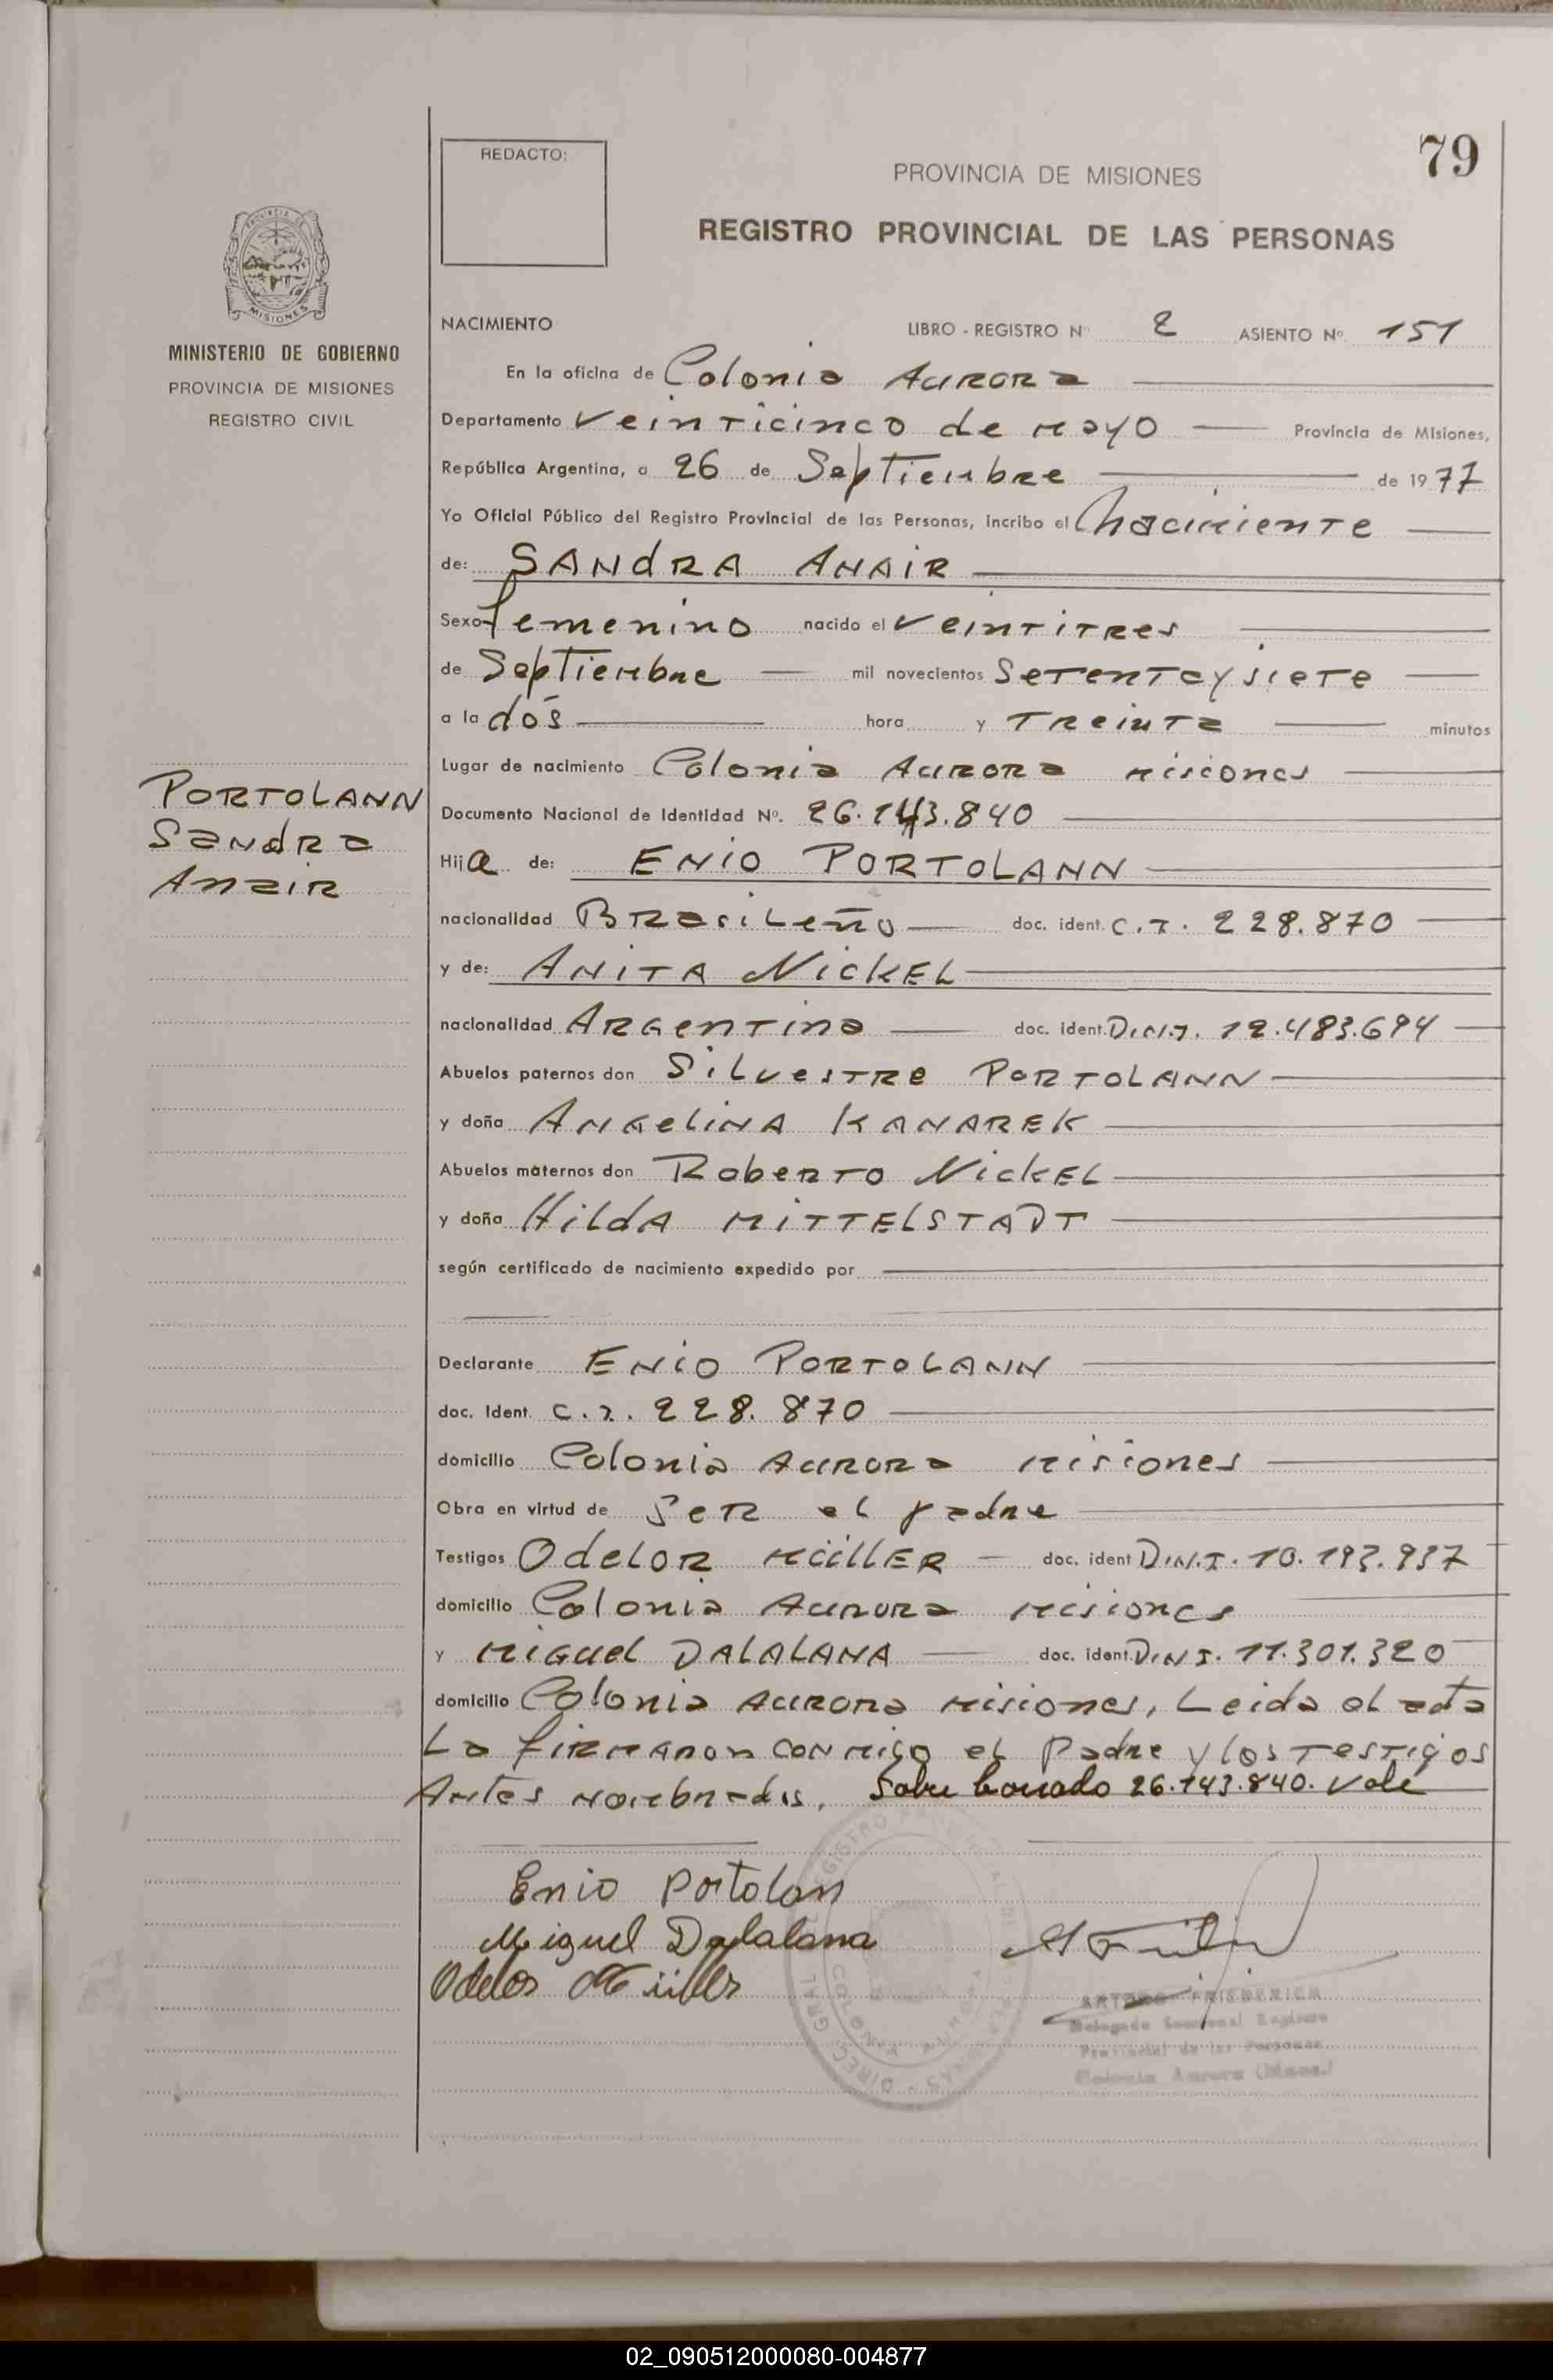 79
REDACTO:
PROVINCIA DE MISIONES
REGISTRO PROVINCIAL DE LAS PERSONAS
MISIONES
MINISTERIO DE GOBIERNO
PROVINCIA DE MISIONES
REGISTRO CIVIL
NACIMIENTO LIBRO - REGISTRO Nº 2 ASIENTO Nº 151
En la oficina de Colonia Aurora
Departamento Veinticinco de Mayo Provincia de Misiones,
República Argentina, a 26 de Septiembre de 1977
Yo Oficial Público del Registro Provincial de las Personas, incribo el Nacimiento
de: SANdRA ANAiR
Sexo femenino nacido el Veintitres
de Septiembre mil novecientos Setentaysiete
a la dós hora y Treinta minutos
Lugar de nacimiento Colonia Aurora Misiones
PORTOLANN
Sandra
Anair
Documento Nacional de Identidad Nº. 26.143.840
Hija de: ENiO PORTOLANN
nacionalidad Brasileño doc. ident. C.I. 228.870
y de: ANiTA NickEL
nacionalidad Argentina doc. ident. D.N.I. 12.483.694
Abuelos paternos don Silvestre PORTOLANN
y doña ANGeliNA KANAREK
Abuelos maternos don Roberto NickEL
y doña HildA MiTTELSTADT
según certificado de nacimiento expedido por
Declarante ENiO PORTOLANN
doc. Ident. C.I. 228.870
domicilio Colonia Aurora Misiones
Obra en virtud de Ser el padre
Testigos Odelor MüllER doc. ident D.N.I. 10.193.937
domicilio Colonia Aurora Misiones
y Miguel DALALANA doc. ident. D.N.I. 11.301.320
domicilio Colonia Aurora Misiones, Leida el acta
La firmaron conmigo el Padre y los Testigos
Antes nombrados. Sobre borrado 26.143.840. Vale
Enio Portolan
Miguel Dalalana
Odelor Müller
ARTURO FRIEDERICH
Delegado Seccional Registro
Provincial de las Personas
Colonia Aurora (Mnes.)
02_090512000080-004877